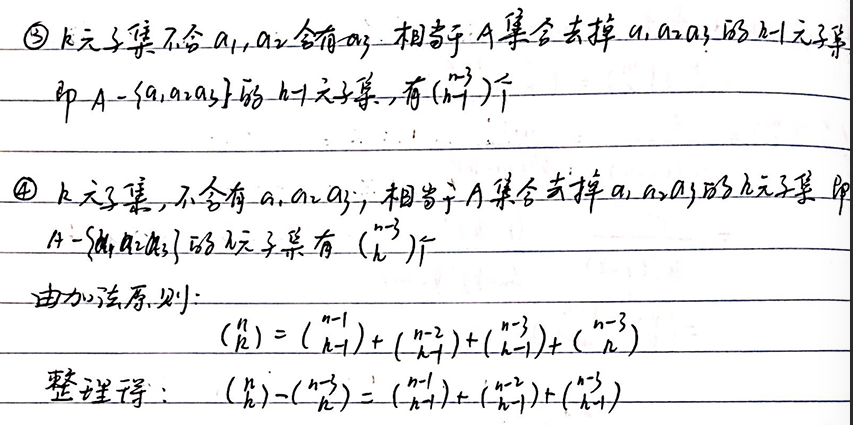 ③ k元子集不含 a₁, a₂ 含有 a₃ 相当于 A 集合去掉 a₁ a₂ a₃ 的 k-1 元子集
即 A-{a₁ a₂ a₃} 的 k-1 元子集, 有 (n-3 k-1) 个
④ k元子集, 不含有 a₁ a₂ a₃, 相当于 A 集合去掉 a₁ a₂ a₃ 的 k元子集 即
A-{a₁ a₂ a₃} 的 k元子集有 (n-3 k) 个
由加法原则:
(n k) = (n-1 k-1) + (n-2 k-1) + (n-3 k-1) + (n-3 k)
整理得: (n k) - (n-3 k) = (n-1 k-1) + (n-2 k-1) + (n-3 k-1)